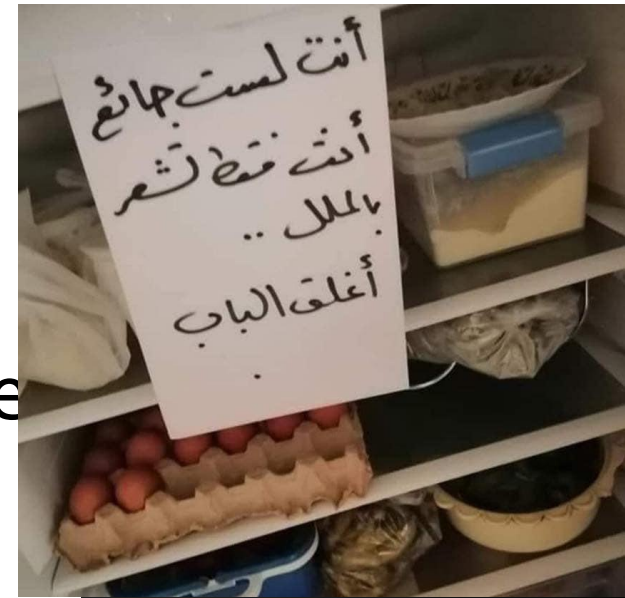 أنت لست جائع
أنت فقط تشعر
بالملل ..
أغلق الباب
.
e